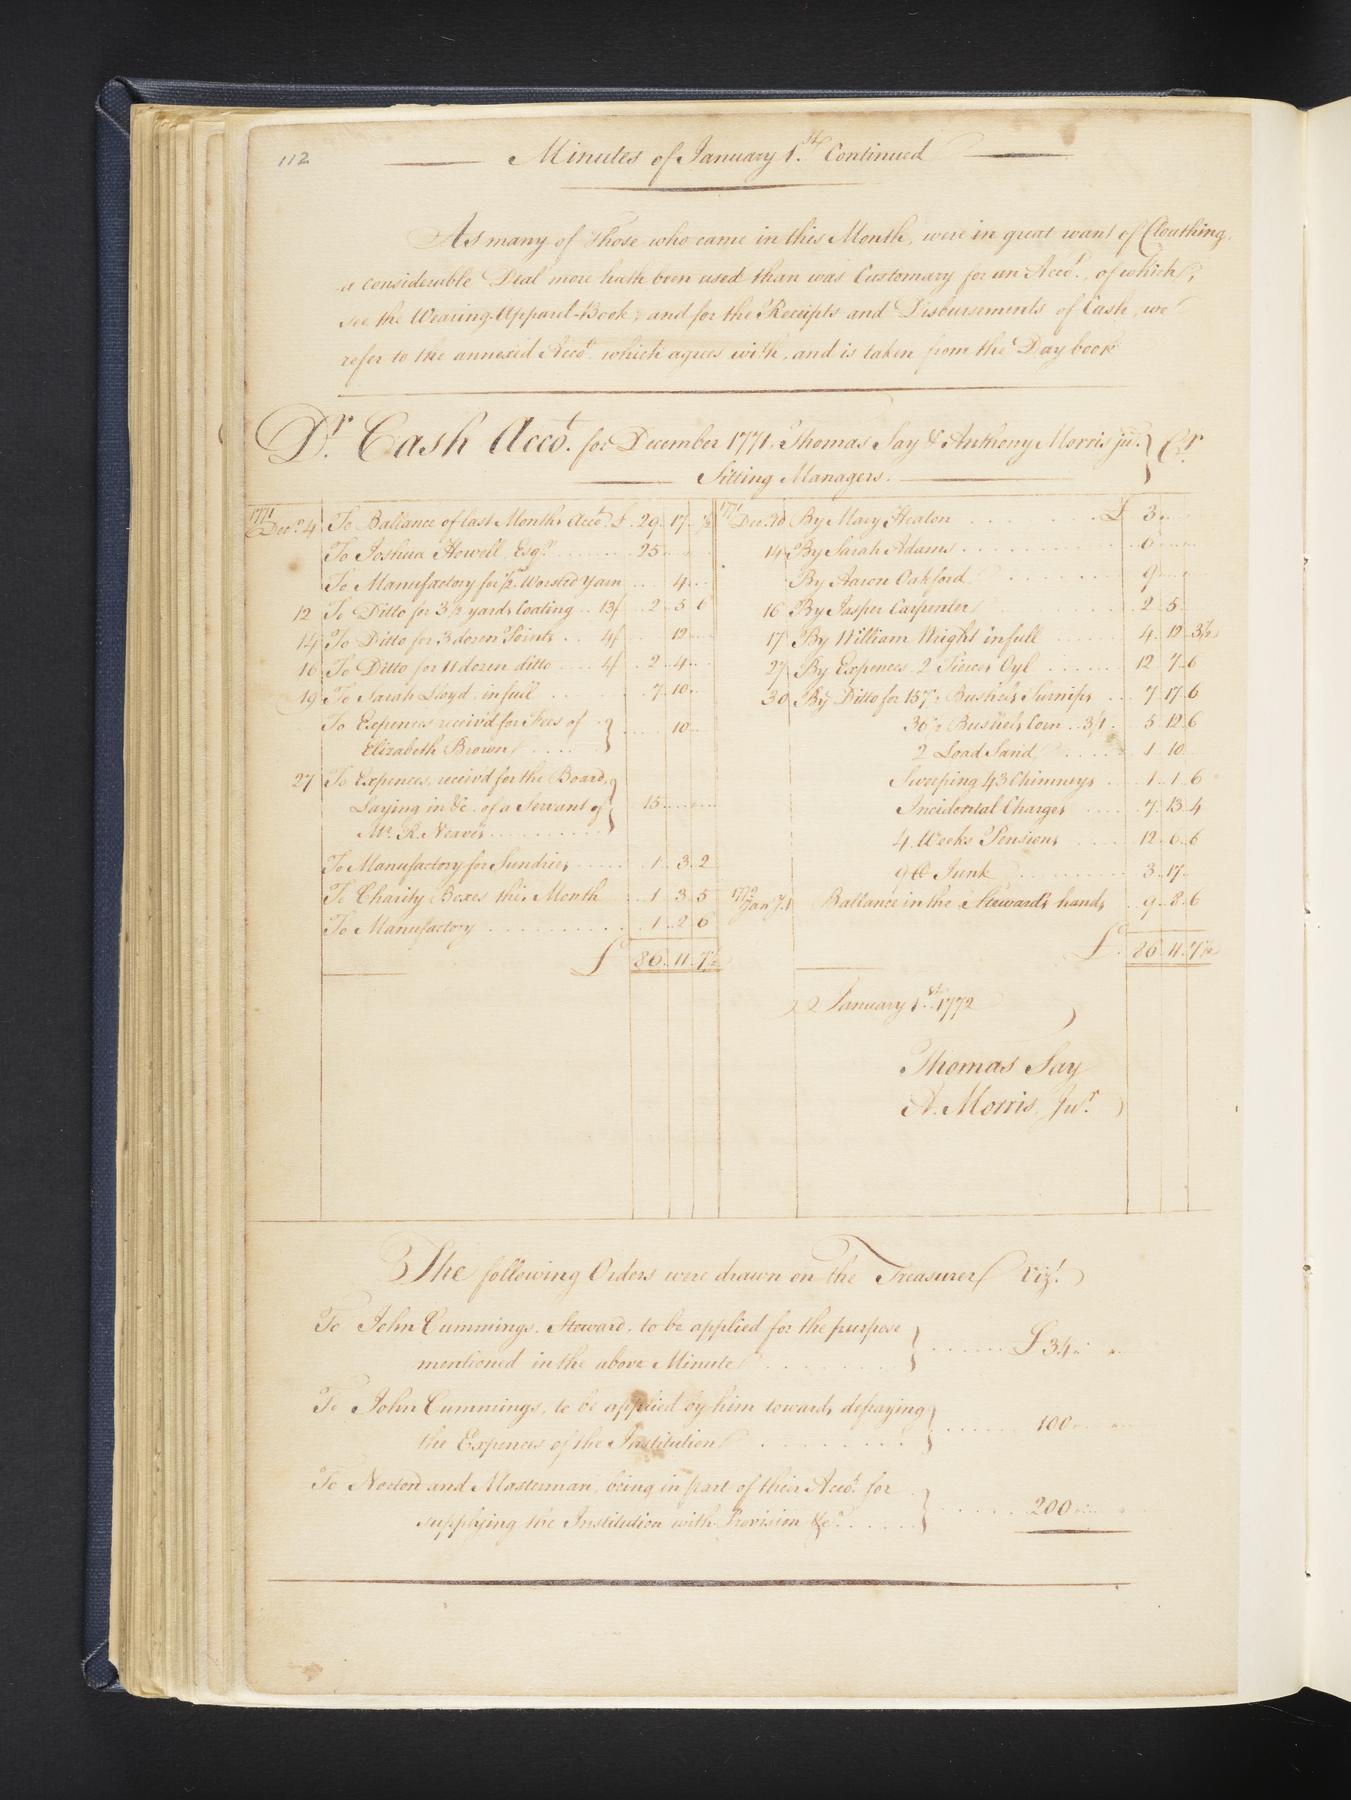 112
Minutes of January 1.st Continued
As many of those who came in this Month, were in great want of Cloathing,
a considerable Deal more hath been used than was Customary for an Acco.t, of which,
see the Wearing-Apparel-Book; and for the Receipts and Disbursements of Cash, we
refer to the annexed Acco.t which agrees with, and is taken from the Day book
D.r Cash Acco.t for December 1771. Thomas Say & Anthony Morris ju.r } C.r
Sitting Managers.
1771 Dec.r 4 To Ballance of last Months Acco.t £ 29 17 ½
To Joshua Howell, Esq.r 25
To Manufactory for ½ lb Worsted Yarn 4
12 To Ditto for 3½ yards Coating 13/ 2 5 6
14 To Ditto for 3 dozen Points 4/ 12
16 To Ditto for 11 dozen ditto 4/ 2 4
19 To Sarah Lloyd in full 7 10
To Expences receiv'd for Fees of
Elizabeth Brown } 10
27 To Expences, receiv'd for the Board,
Laying in &c. of a Servant of } 15
Mr. R. Neave's
To Manufactory for Sundries 1 3 2
To Charity Boxes this Month 1 3 5
To Manufactory 1 2 6
£ 86 11 7½
1771 Dec.r 10 By Mary Heaton £ 3
14 By Sarah Adams 6
By Aaron Oakford 9
16 By Jasper Carpenter 2 5
17 By William Wright in full 4 12 3½
27 By Expences, 2 Tierces Oyl 12 7 6
30 By Ditto for 157½ Bushels Turnips 7 17 6
36½ Bushels Corn 3/1 5 12 6
2 Load Sand 1 10
Sweeping 43 Chimneys 1 1 6
Incidental Charges 7 13 4
4 Weeks Pensions 12 6 6
Junk 3 17
1772 Jan.y 1 Ballance in the Steward's hands 9 8 6
£ 86 11 7½
January 1.st 1772
Thomas Say
A. Morris, Ju.r
The following Orders were drawn on the Treasurer Viz.t
To John Cummings, Steward, to be applied for the purpose
mentioned in the above Minute } £ 34
To John Cummings, to be applied by him towards defraying
the Expences of the Institution } 100
To Norton and Masterman, being in part of their Acco.t for
supplying the Institution with Provision &c. } 200